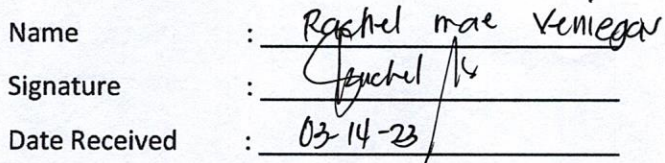 Name : Rachel mae Veniegas
Signature :
Date Received : 03-14-23